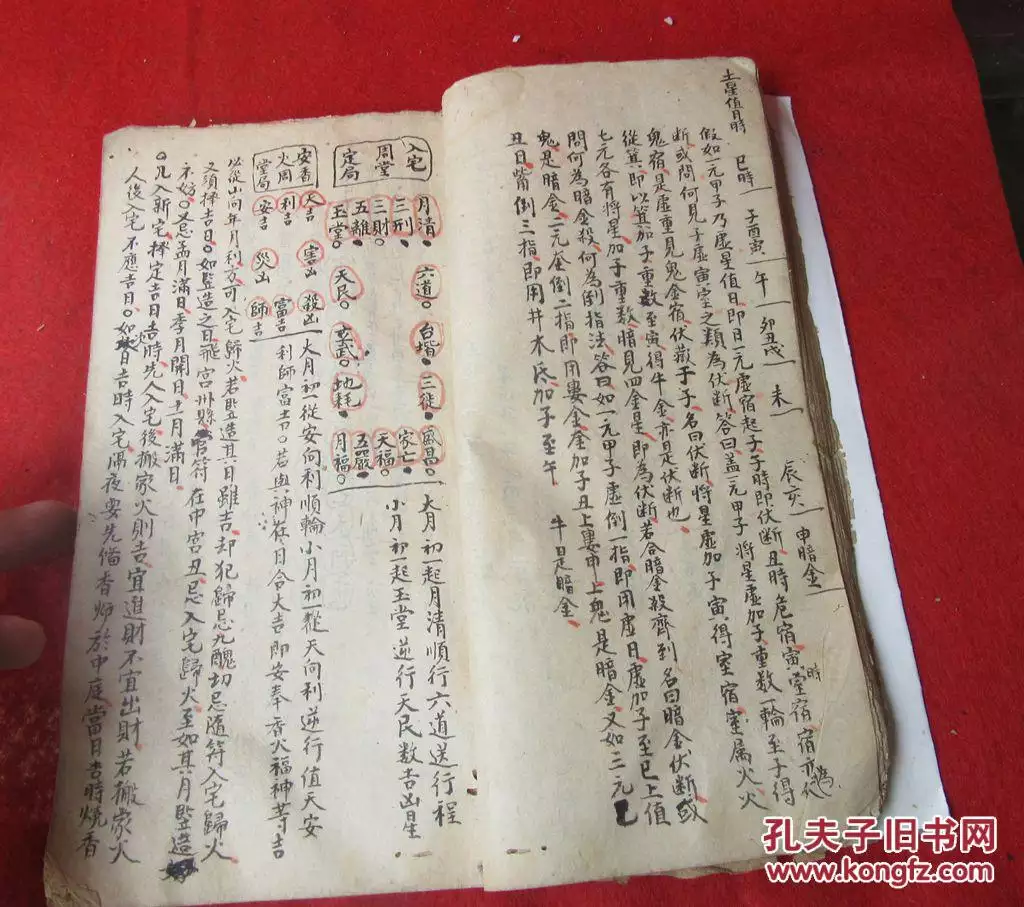 土星值日時 巳時 子酉寅 午 卯丑戌 未 辰亥 申暗金
假如一元甲子乃虛星值日即日一元虛宿起子子時即伏斷丑時危宿寅時室宿
断或問何見子虛寅室之類為伏断答曰盖一元甲子將星虛加子重数一輪至子得
鬼宿是虛重見鬼金宿伏藏于子名曰伏断將星虛加子寅得室宿室属火火
從箕即以箕加子重數至寅得牛金亦是伏断也
七元各有將星加子重数暗見四金是即為伏断若合暗金殺齊到名曰暗金伏断或
問何為暗金殺何為倒指法答曰如一元甲子虛倒一指即用虛日虛加子至巳上值
鬼是暗金二元奎倒二指即用婁金奎加子丑上婁申上鬼是暗金又如三元
丑日觜倒三指即用井木氐加子至午 牛是暗金
入宅周堂定局
月清 六道 台堦 三徙 盛昌
三刑 家亡
三財 天福
五離
玉堂 天民 玄武 地耗 月福
大月初一起月清順行六道送行程
小月初一起玉堂逆行天民数吉凶星
安香火周堂局
天吉 害凶 殺凶
利吉 富吉
安吉 災凶 師吉
大月初一從安向利順輪小月初一從天向利逆行值天安
利師富吉 若與神在日合大吉即安奉香火福神等吉
必從山向年月利方可入宅歸火若竪造其日雖吉却犯歸忌九醜切忌隨符入宅歸火
又須擇吉日如竪造之日飛宮州縣官符在中宮丑忌入宅歸火至如其月竪造
不妨又忌孟月滿日季月開日十一月滿日
凡入新宅擇定吉日吉時先入入宅後搬家火則吉宜進財不宜出財若搬家火
人後入宅不應吉日如日吉時入宅隔夜要先備香炉於中庭當日吉時燒香
孔夫子旧书网
www.kongfz.com